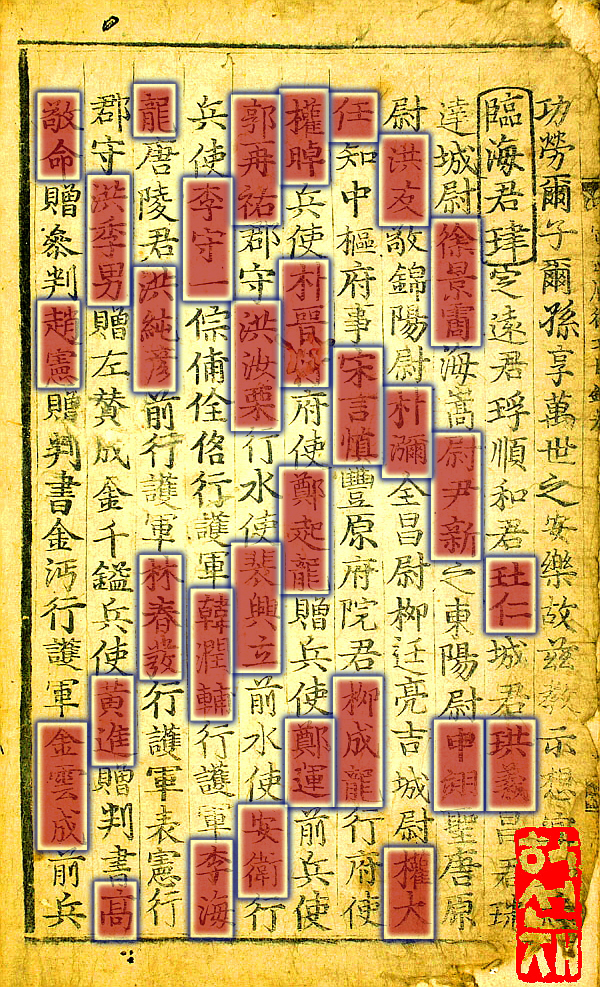 功勞爾子爾孫享萬世之安樂故玆教示想宜
臨海君珒定遠君琈順和君𤣰仁城君珙義昌君珖
達城尉徐景霌海嵩尉尹新之東陽尉申翊聖唐原
尉洪友敬錦陽尉朴瀰全昌尉柳廷亮吉城尉權大
任知中樞府事宋言愼豐原府院君柳成龍行府使
權晫兵使朴晋 府使鄭起龍贈兵使鄭運前兵使
郭再祐郡守洪汝栗行水使裴興立前水使安衛行
兵使李守一 行護軍韓潤輔行護軍李海
龍唐陵君洪純彦前行護軍林春發行護軍表憲行
郡守洪季男贈左贊成金千鎰兵使黃進贈判書高
敬命贈參判趙憲贈判書金沔行護軍金雲成前兵